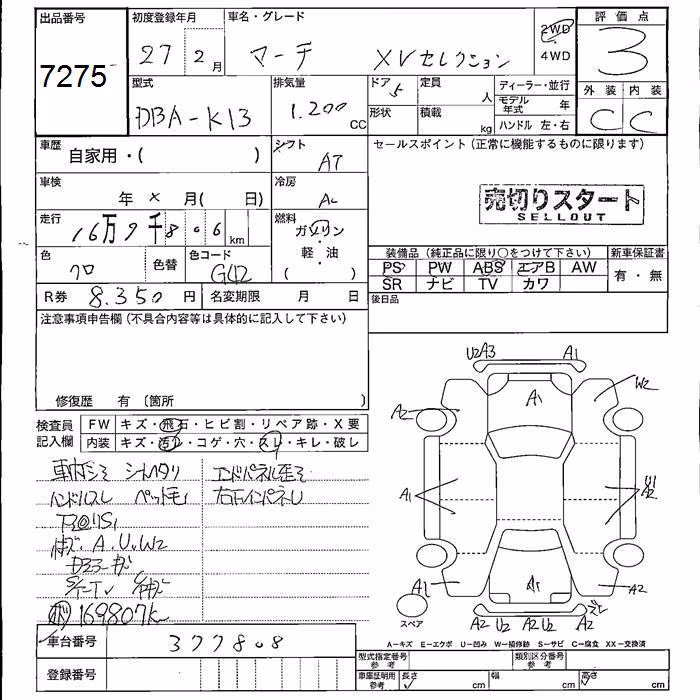 出品番号
7275
初度登録年月
27 2月
車名・グレード
マーチ XVセレクション
2WD
4WD
評価点
3
外装 内装
C C
型式
DBA-K13
排気量
1.200 CC
ドア 5
形状
定員 人
積載 kg
ディーラー・並行
モデル年式 年
ハンドル 左・右
車歴
自家用・( )
シフト
AT
セールスポイント (正常に機能するものに限ります)
売切りスタート
SELLOUT
車検
年 × 月( 日)
冷房
AC
走行
16万9千8 0 6 km
燃料
ガソリン
・
軽・油
( )
色
クロ
色替
色コード
G42
R券 8.350円
名変期限 月 日
装備品 (純正品に限り○をつけて下さい)
PS PW ABS エアB AW
SR ナビ TV カワ
新車保証書
有・無
後日品
注意事項申告欄 (不具合内容等は具体的に記入して下さい)
修復歴 有 〔箇所 〕
検査員
記入欄
FW キズ・飛石・ヒビ割・リペア跡・X要
内装 キズ・汚レ・コゲ・穴・スレ・キレ・破レ
車内ゴミ シートヘタリ エンドパネル歪ミ
ハンドルスレ ペット毛 右下インパネレ
キズ・A.U.W2
169807K
車台番号 377808
登録番号
U2 A3 A1
A1 W2
A2
A1 A2
A1 A1 A2
A2 U2 A2 U2 A2
スペア
A-キズ E-エクボ U-凹み W-補修跡 S-サビ C-腐食 XX-交換済
型式指定番号 参考
類別区分番号 参考
車庫証明用 参考
長さ cm
幅 cm
高さ cm